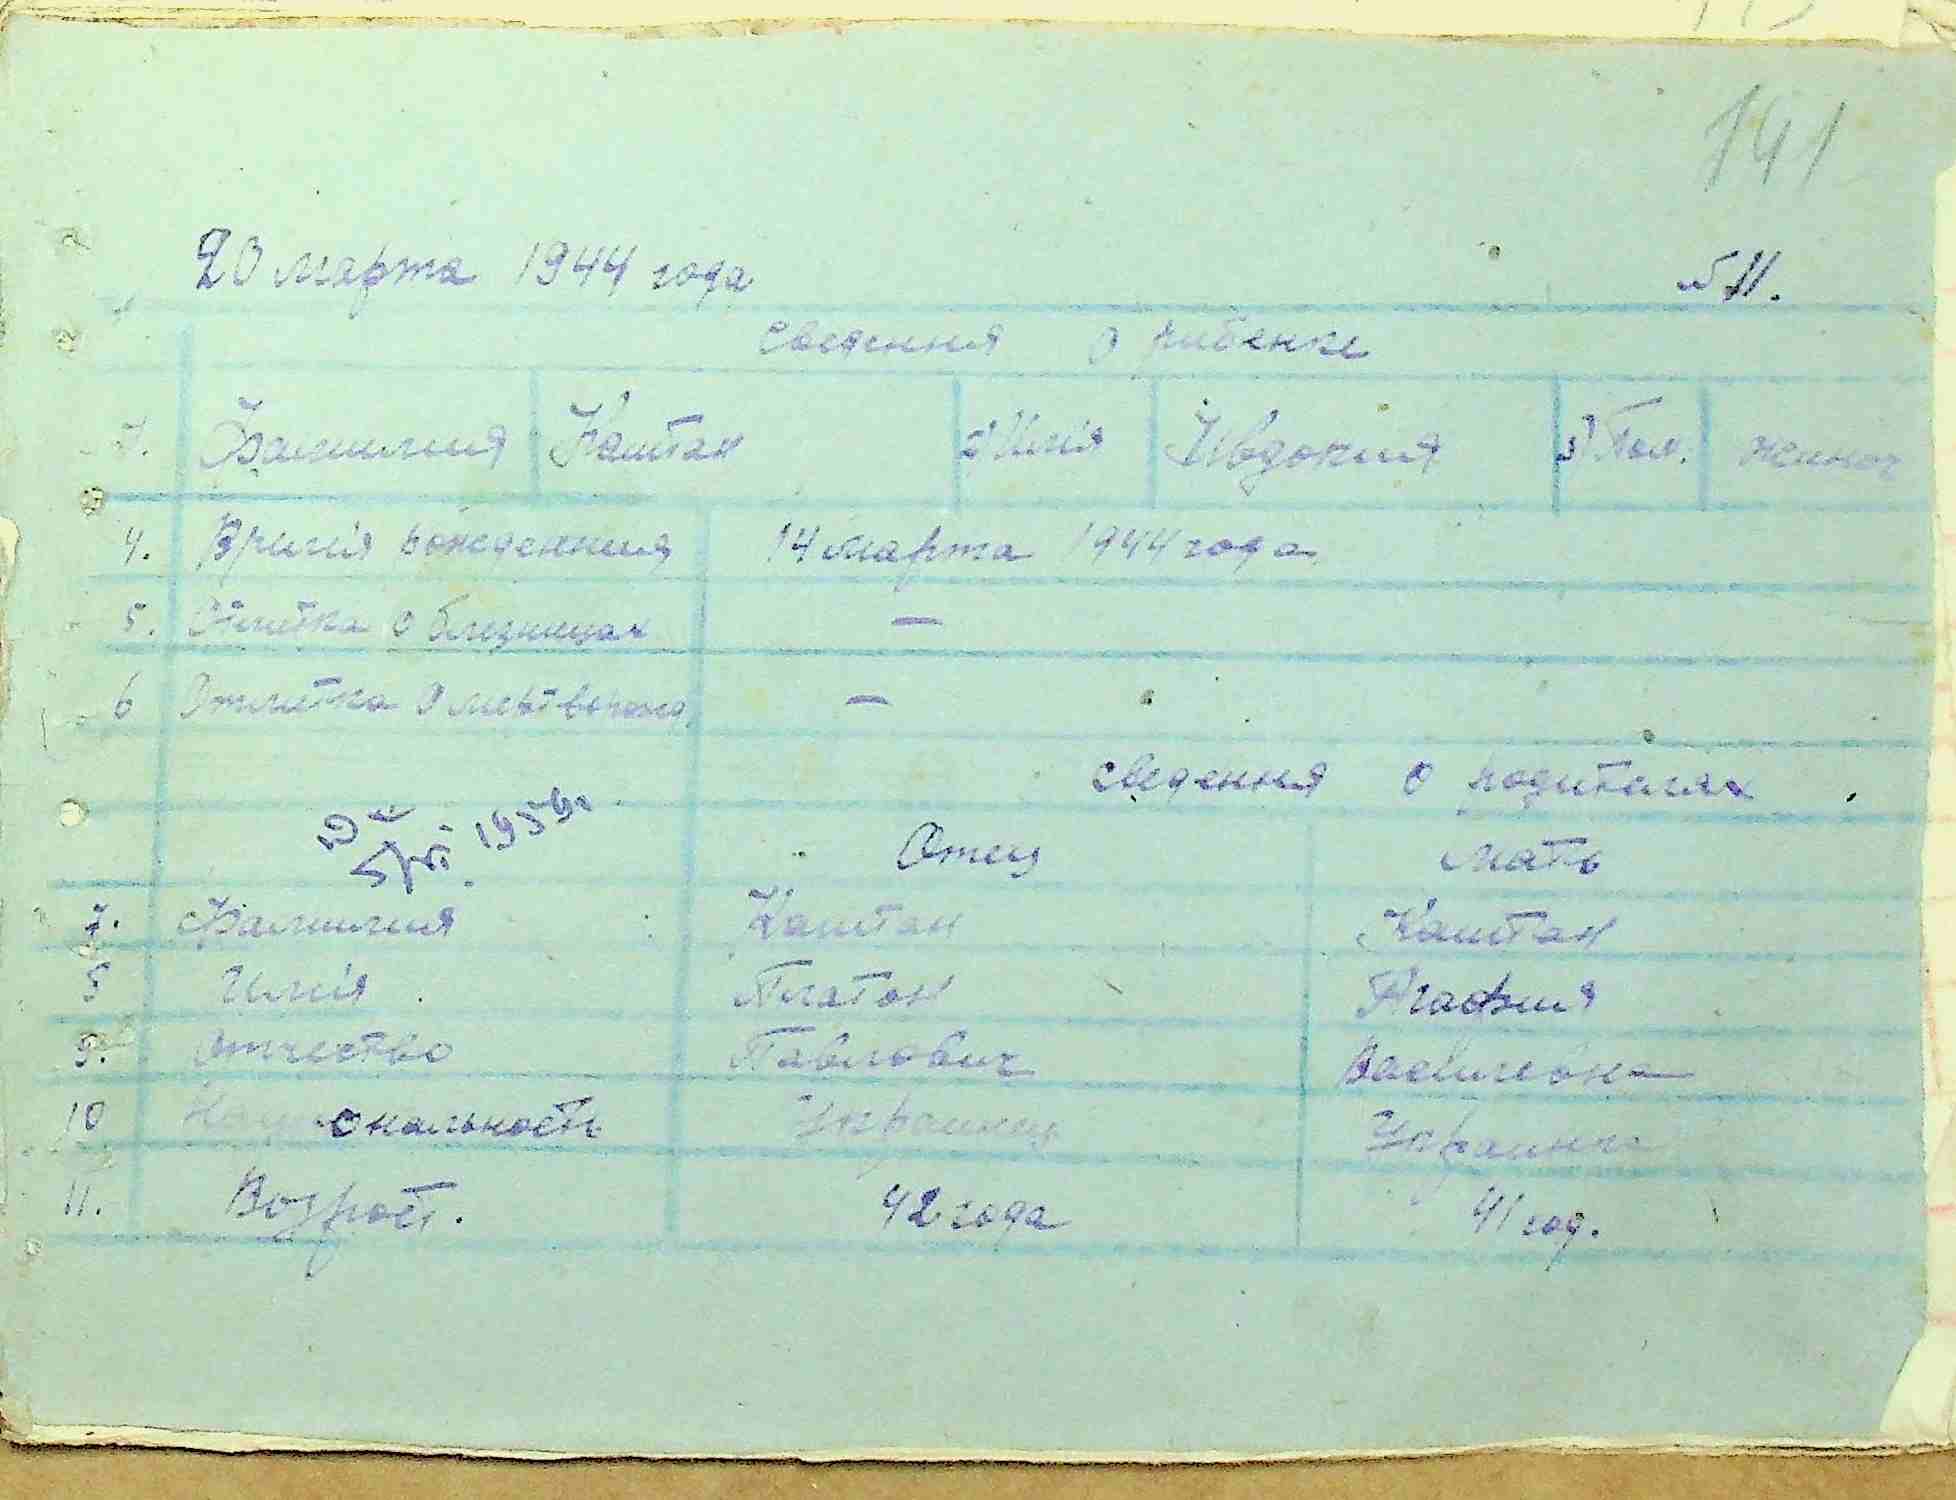 141
20 марта 1944 года №11.
сведения о рибенке
1. Фамилия Каштан 2) Имія Ивдокия 3) Пол. женск
4. Времія рождениия 14 марта 1944 года
5. Отмитка о близницах —
6 Отмитка о мертворожд. —
сведения о родителях
1959г.
Отец мать
7. Фамилия Каштан Каштан
8 Имія Платон Агафия
9. Отчество Павлович Василевна
10 Националъность Украинец Украинка
11. Возрост. 42 года 41 год.